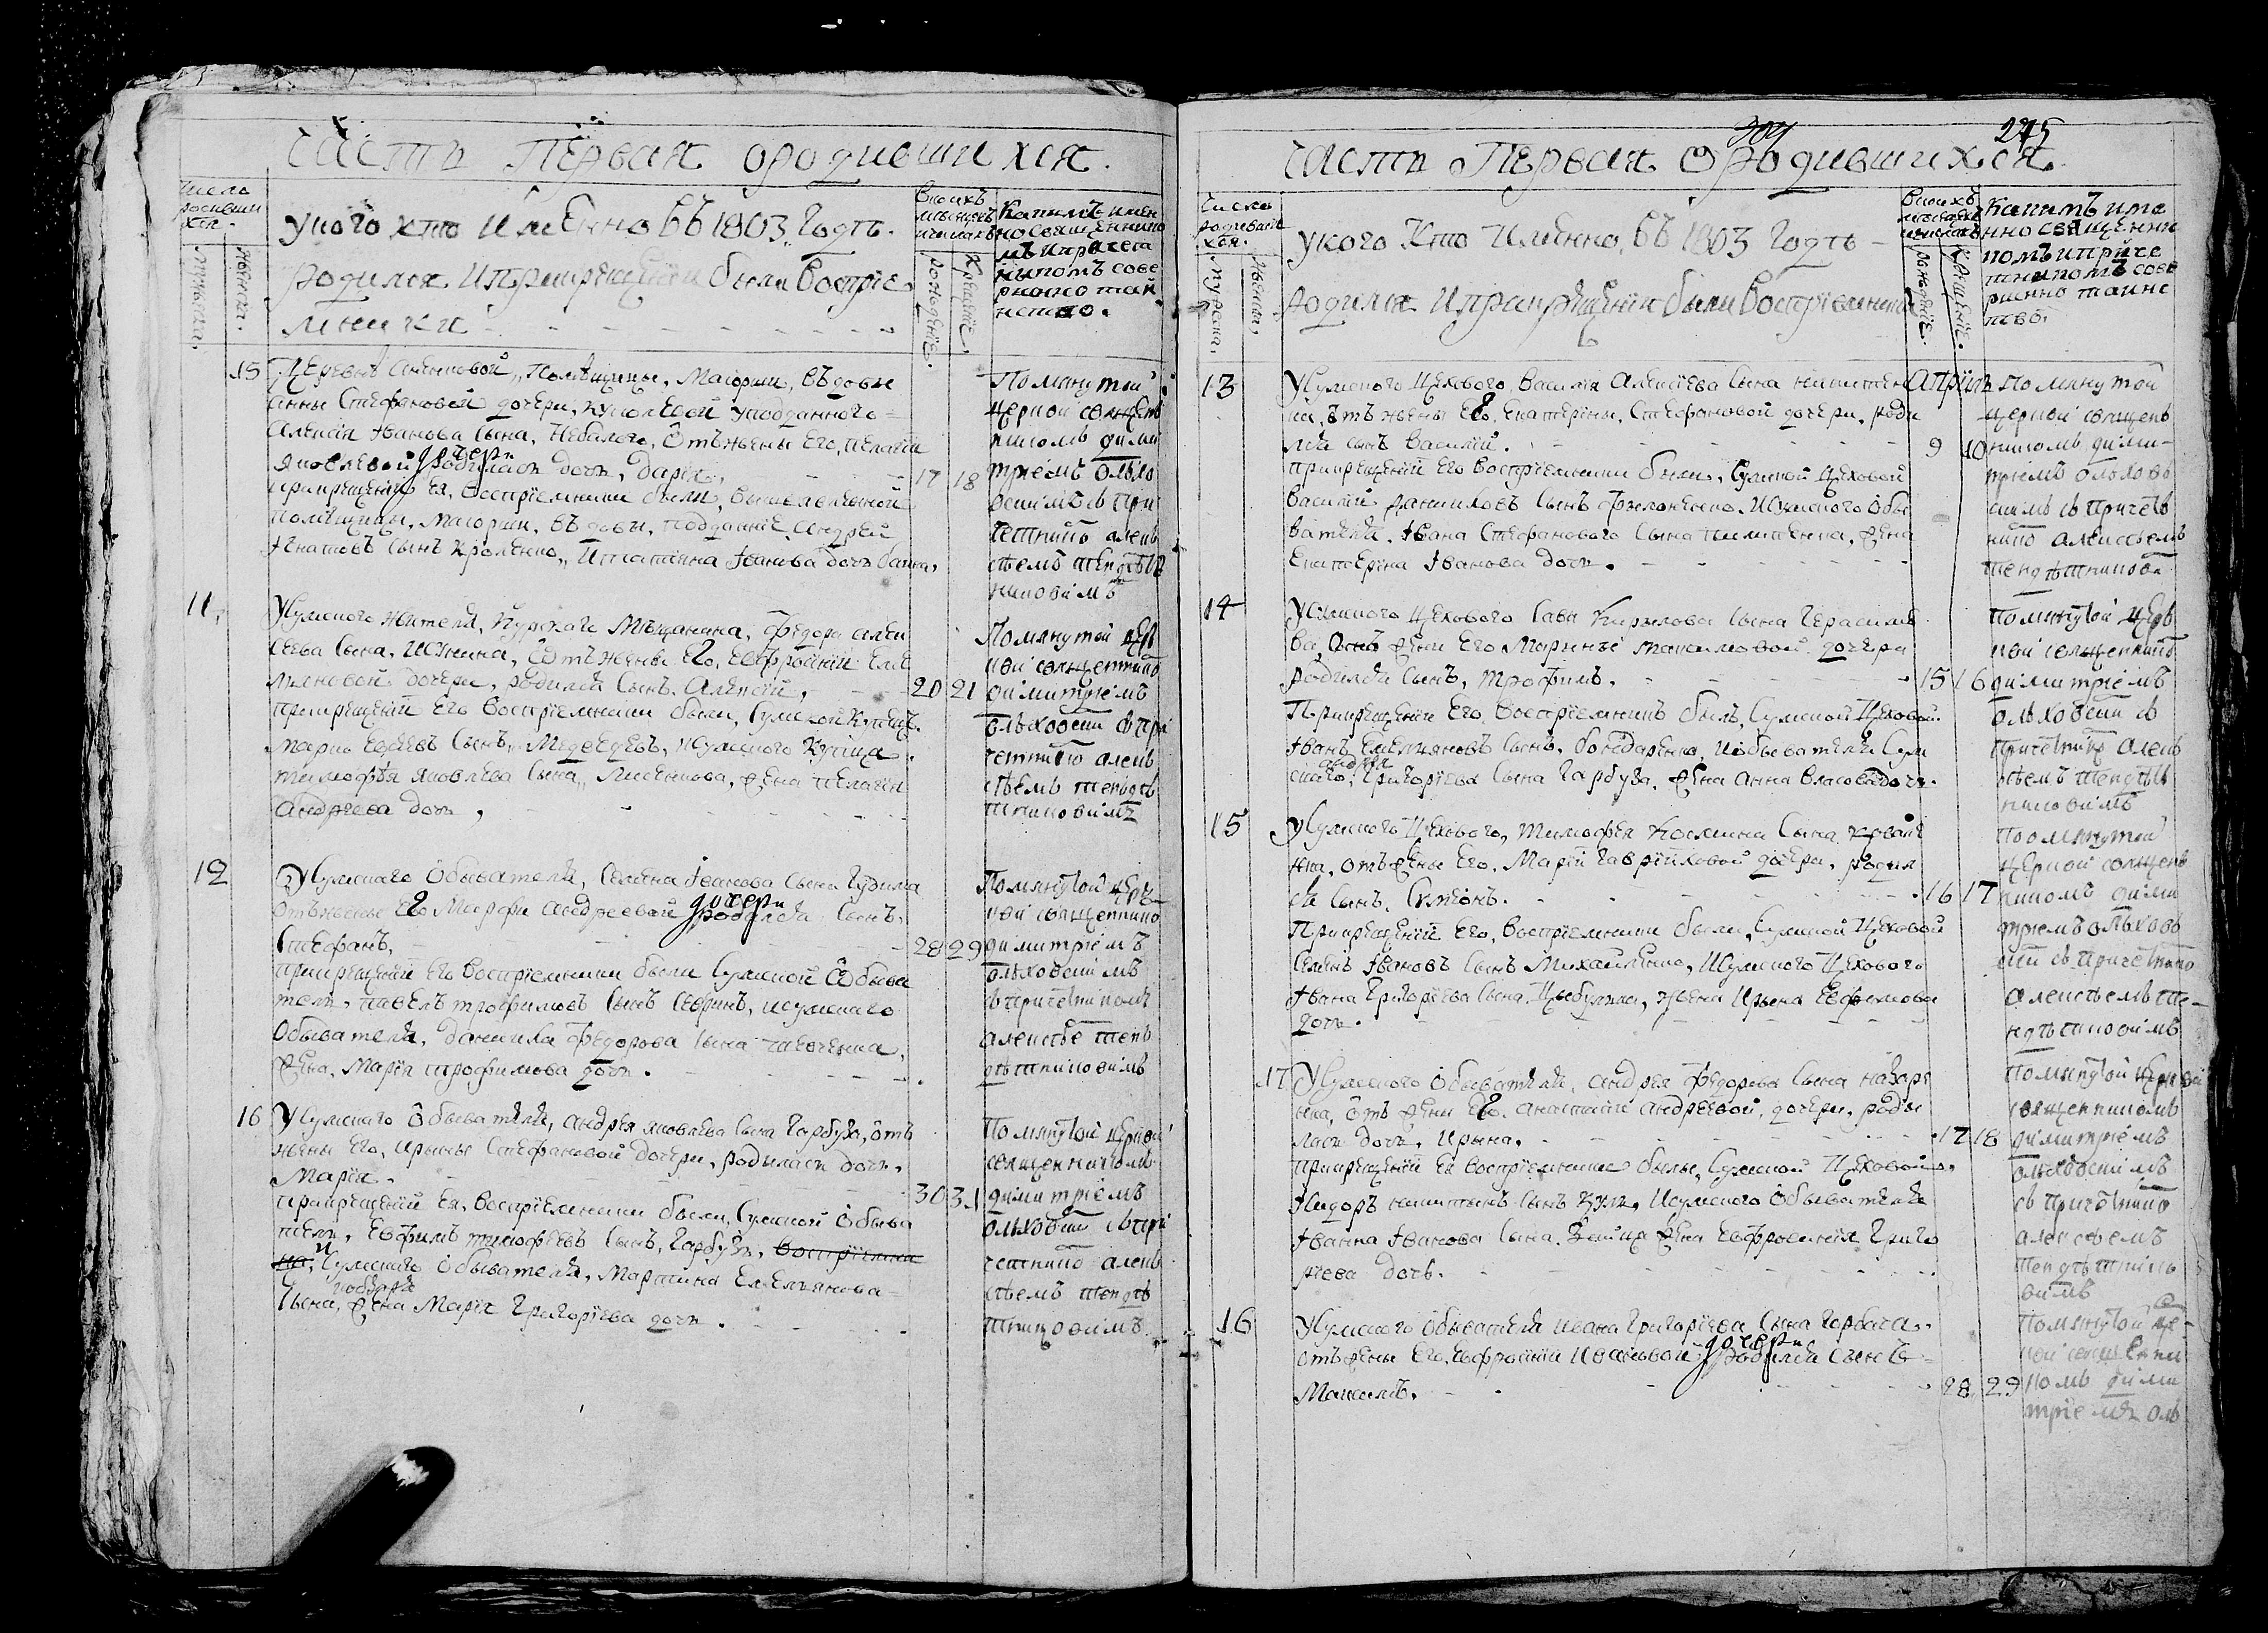 Часть Первая ородившихся.
Число
родивши
хся.
Мужеска.
Женска.
Укого кто имЕнно ВЪ 1803 Годѣ.
Родился Иприкрещенїи были Воспрїе
мники
Вкоихъ
мѣсяцехъ
ичислахъ
рожденїе.
Крещенїе.
Какимъ имен
но священнико
мъ Ипричет
никомъ сове
ршено таи
нство.
15 Деревнѣ Помѣщицы, Маіорши, Въдовы
анны Стефановой дочери, уподданного
Алексія Іванова Сына, Отъ жены Его, пелагіи
яковлевой дочери родилась дочь, Дарія, 17 18
прикрещенїи Ея, воспрїемники были, вышеявленной
помѣщицы, Маіорши, вЪдовы, подданнїе Андрей
Ігнатовъ сынъ Кроленко, Итатіяна Іванова дочь
Помянутой
церкви священ
никомъ дими
тріемъ Ольхо
вскимъ с При
четникѡ алек
сѣемъ тендѣт
никовимъ
11, УСумского жителя, Курскаго Мѣщанина, Федора алек
сѣева Сына, Отъ жены Его, Евфросініи Емел
мяновой дочери, родился Сынъ, Алексїй, 20 21
прикрещенїи Его Воспрїемники были, Сумской Купецъ
Марко Сынъ, Медведевъ, ИСумского Купца
тимофѣя яковлева Сына, жена пелагія
Андрѣева дочь,
Помянутой цер
кви священникѡ
димитріемъ
ольховски с при
четникѡ алек
сѣемъ тендѣ
тниковимъ
12 УСумскаго Обывателя, Семена Іванова Сына Гудима
Отъ жены Его Марфи андреевой дочери родился Сынъ,
Стефанъ, 28 29
прикрещенїи Его Воспрїемники были Сумской Обыва
тель, павелъ трофимовъ Сынъ исумскаго
Обывателя, Даніила Федорова Сына Шевченка,
жена, Марія трофимова дочь.
Помянутой цер
кви священнико
димитріемъ
ольховскимъ
с причетникомъ
алексѣе тен
дѣтниковимъ
16 УСумскаго Обывателя, андрея яковлева Сына Гарбуза, отъ
жены Его, Ирины Стефановой дочери, родилась дочь,
Марія. 30 31
прикрещенїи Ея, Воспрїемники были, Сумской Обыва
тель, Евфимъ тимофѣевъ Сынъ, Гарбузъ, воспрїемни
ка, и Сумскаго Обывателя, Мартина Емелянова
Сына, жена Марія Григорїева дочь.
Помянутой церкви
священникомъ
димитріемъ
ольховски с при
четникѡ алек
сѣемъ тендѣ
тниковимъ.
304 275
Часть Первая ородившихся.
Число
родивши
хся.
Мужеска.
Женска.
Укого Кто Именно, ВЪ 1803 Годѣ
Родился Иприкрещенїи были Воспрїемники
Вкоихъ
мѣсяцехъ
ичислахъ
рожденїе.
Крещенїе.
Какимъ име
нно священни
комъ иприче
тникомъ сове
ршенно таинс
тво.
Апрїль
13 УСумского Цехового, Василія Алексїева Сына Никитен
ка, отъ жены Его, Екатерины, Стефановой дочери, роди
лся сынъ Василій. 9 10
прикрещенїи Его Воспрїемники были, Сумской Цеховой
Василій Данииловъ Сынъ Филоненко, ИСумского Обы
вателя, Івана Стефанового Сына жена
Екатерина Іванова дочь.
Помянутой
церкви священ
никомъ дими-
тріемъ ольховс
кимъ с Причет
никѡ алексѣемъ
тендѣтникови
14 УСумского Цехового Савы Кирилова Сына Герасиме
ва, жены Его Марины Максимовой дочери
родился Сынъ, Трофимъ. 15 16
Прикрещенїи Его, Воспрїемникъ былъ, Сумской Цеховой
Іванъ Емеляновъ Сынъ, бондаренко, иобывателя Сум
скаго, андрея Григорїева Сына Гарбуза, жена Анна Власовадочь.
Помянутой Церк
кви священникѡ
димитріемъ
ольховски с
Причетникѡ алек
сѣемъ тендѣт
никовимъ
15 УСумского Цехового, Тимофея Космина Сына
нка, отъ жены Его, Маріи Гаврійловой дочери, родил
ся Сынъ, Симеонъ. 16 17
Прикрещенїи Его, Воспрїемники были, Сумской Цеховой
Семенъ Івановъ Сынъ Михайленко, ИСумского Цехового
Івана Григорїева Сына, Цыбулника, жена Ирина Евфимова
дочь.
Поомянутой
церкви священ
никомъ дими
тріемъ ольховс
ки с причетнико
алексѣемъ те-
ндѣтниковимъ
17 УСумского Обывателя, андрея Федорова Сына назаре
нка, отъ жены Его, анастасіи андреевой, дочери, роди
лась дочь, Ирина. 17 18
прикрещенїи Ея воспрїемники были, Сумской Цеховой,
Исидоръ никитинъ Сынъ Исумского Обывателя
Іванна Іванова Сына, жена Евфросинія Григо
рїева дочь.
Помянутой церкви
священникомъ
димитріемъ
ольховскимъ
с причетникѡ
алексѣемъ
тендѣтнико
вимъ
16 УСумского Обывателя Ивана Григорїева Сына Горбача,
отъ жены Его, Евфросиніи Ивановой дочери родился Сынъ
Максимъ. 28 29
Помянутой це-
кви священни
комъ дими
тріемъ оль